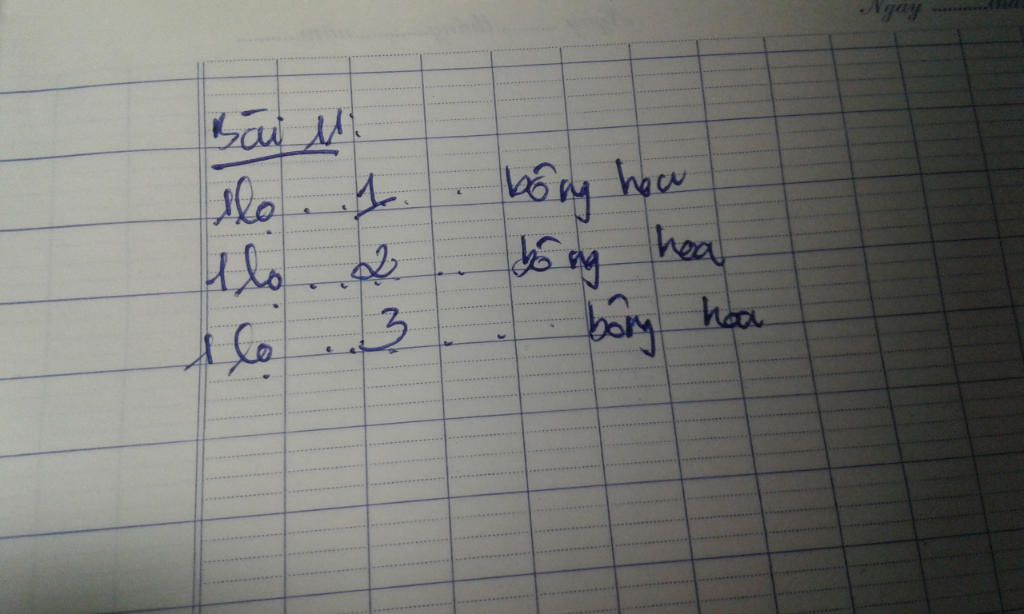 Ngày ..........thá
Bài 11:
1 lọ . . .1. . bông hoa
1 lọ . . .2. . . bông hoa
1 lọ . . .3. . . . bông hoa